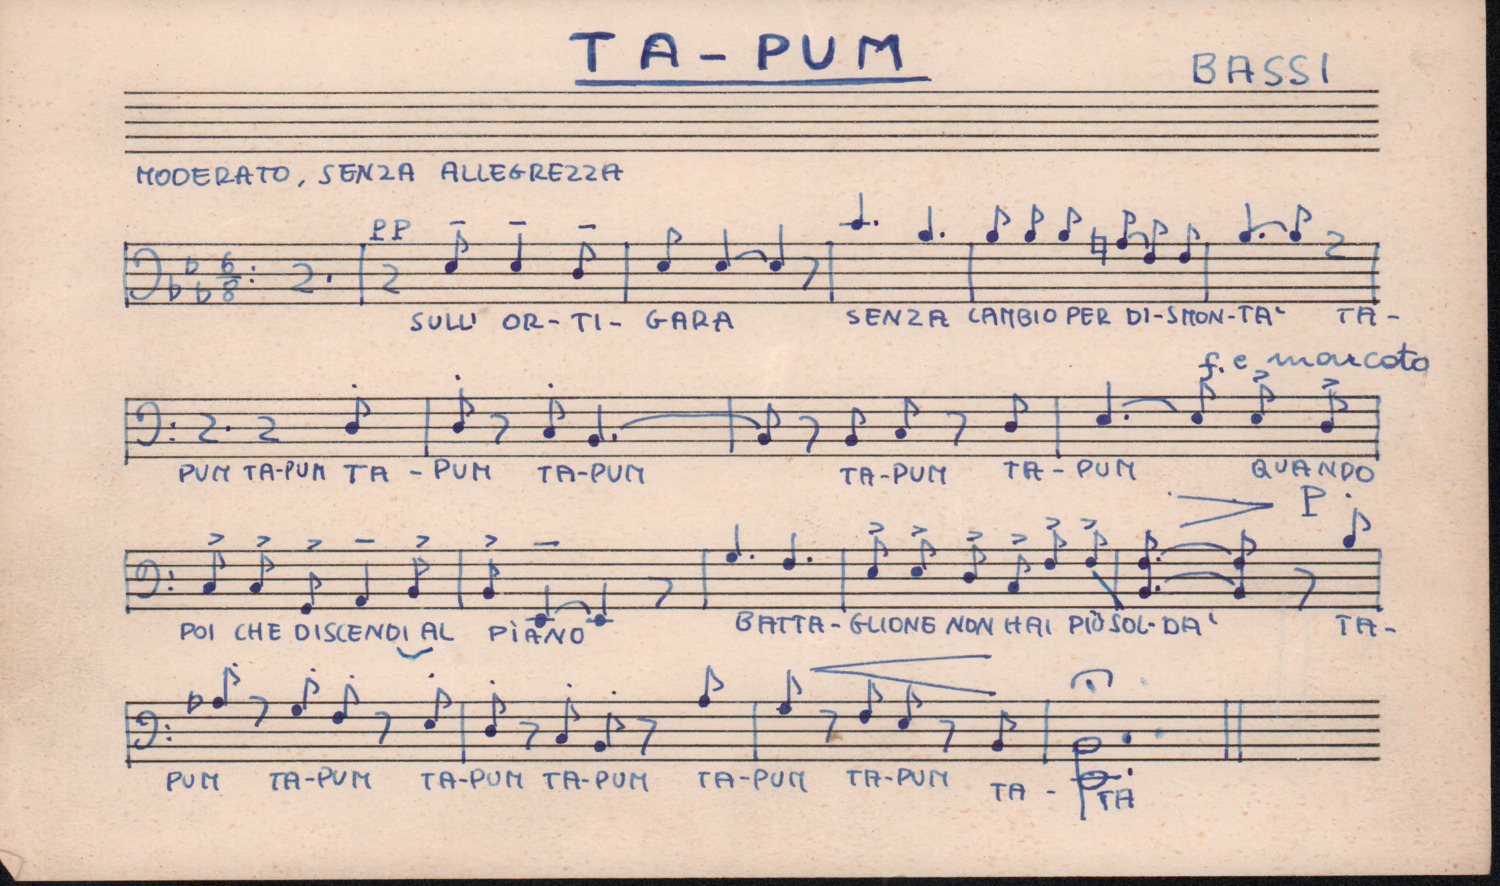 TA-PUM
BASSI
MODERATO, SENZA ALLEGREZZA
PP
6
8
SULL' OR-TI-GARA SENZA CAMBIO PER DI-SMON-TA' TA-
f. e marcato
PUM TA-PUM TA-PUM TA-PUM TA-PUM TA-PUM QUANDO
P
POI CHE DISCENDI AL PIANO BATTA-GLIONE NON HAI PIÙ SOL-DA' TA-
PUM TA-PUM TA-PUM TA-PUM TA-PUM TA-PUM TA-TA